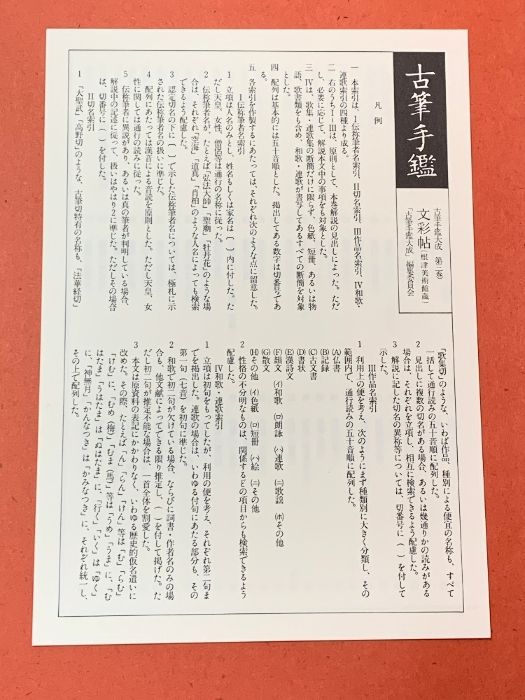 古筆手鑑
古筆手鑑大成 第二巻
文彩帖(根津美術館蔵)
「古筆手鑑大成」編集委員会
凡例
一 本索引は、Ⅰ伝称筆者名索引、Ⅱ切名索引、Ⅲ作品名索引、Ⅳ和歌・
連歌索引の四種より成る。
二 右のうちⅠ〜Ⅲは、原則として、本巻解説の見出しによった。ただ
し、必要に応じて、解説本文中の事項をも対象とした。
三 Ⅳは、歌集・連歌集の断簡だけに限らず、色紙、短冊、あるいは物
語、歌書類をも含め、和歌・連歌が書写してあるすべての断簡を対象
とした。
四 配列は基本的には五十音順とした。掲出してある数字は切番号であ
る。
五 各索引を作成するにあたっては、それぞれ次のような点に留意した。
Ⅰ伝称筆者名索引
1 立項は人名のみとし、姓名もしくは家名は( )内に付した。た
だし天皇、女性、僧侶等は通行の名称に従った。
2 伝称筆者名が、たとえば「弘法大師」「聖廟」「牡丹花」のような場
合は、それぞれ「空海」「道真」「肖柏」のような人名によっても検索
できるよう配慮した。
3 認定切名の下に( )で示した伝称筆者名については、極札に示
された伝称筆者名の扱いに準じた。
4 配列にあたっては漢音による音読を原則とした。ただし天皇、女
性に関しては通行の読みに従った。
5 伝称筆者に異説があり、あるいは真の筆者が判明している場合、
解説中の記述に従って、扱いはやはり2に準じた。ただしその場合
は、切番号に( )を付した。
Ⅱ切名索引
1 「大聖武」「高野切」のような、古筆切特有の名称も、「法華経切」
「歌集切」のような、いわば作品、種別による便宜の名称も、すべて
一括して通行読みの五十音順に配列した。
2 見出しに複数の切名がある場合、あるいは幾通りかの読みがある
場合は、それぞれを立項し、相互に検索できるよう配慮した。
3 解説に記した切名の異称等については、切番号に( )を付して
示した。
Ⅲ作品名索引
1 利用上の便を考え、次のようにまず種類別に大きく分類し、その
範囲内で、通行読みの五十音順に配列した。
(A)仏書
(B)記録
(C)古文書
(D)書状
(E)漢詩文
(F)韻文 (イ)和歌 (ロ)朗詠 (ハ)連歌 (ニ)歌謡 (ホ)その他
(G)散文
(H)その他 (イ)色紙 (ロ)短冊 (ハ)絵 (ニ)その他
2 性格の不分明なものは、関係するどの項目からも検索できるよう
配慮した。
Ⅳ和歌・連歌索引
1 立項は初句をもってしたが、利用の便を考え、それぞれ第二句ま
でを掲出した。連歌の場合は、いわゆる付句にあたる部分も、その
第一句(七音)を初句に準じた。
2 和歌で初二句が欠けている場合、ならびに詞書・作者名のみの場
合も、他文献によってできる限り推定し、( )を付して掲げた。た
だし初二句が推定不能な場合は、一首全体を割愛した。
3 本文は原資料の表記にかかわりなく、いわゆる歴史的仮名遣いに
改めた。その際、たとえば「ん」「らん」「けん」等は「む」「らむ」
「けむ」に、「むめ(梅)」「むま(馬)」等は「うめ」「うま」に、「む
はたま」「うはたま」は「ぬはたま」に、「行く」「いく」は「ゆく」
に、「神無月」「かんなつき」は「かみなつき」に、それぞれ統一し、
その上で配列した。